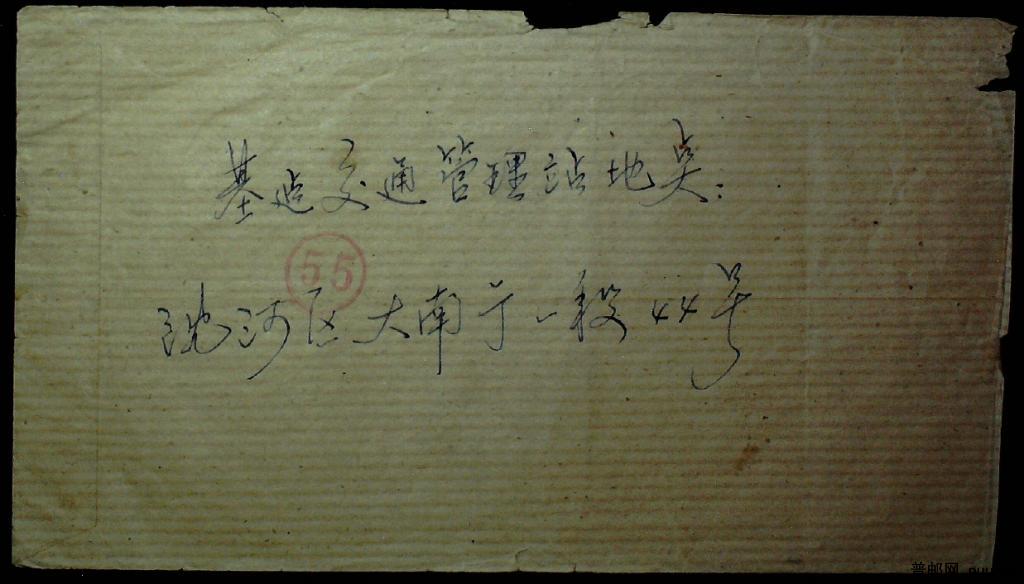 基近交通管理站地奌:
55
沈河区大南亍一段44号
普邮网